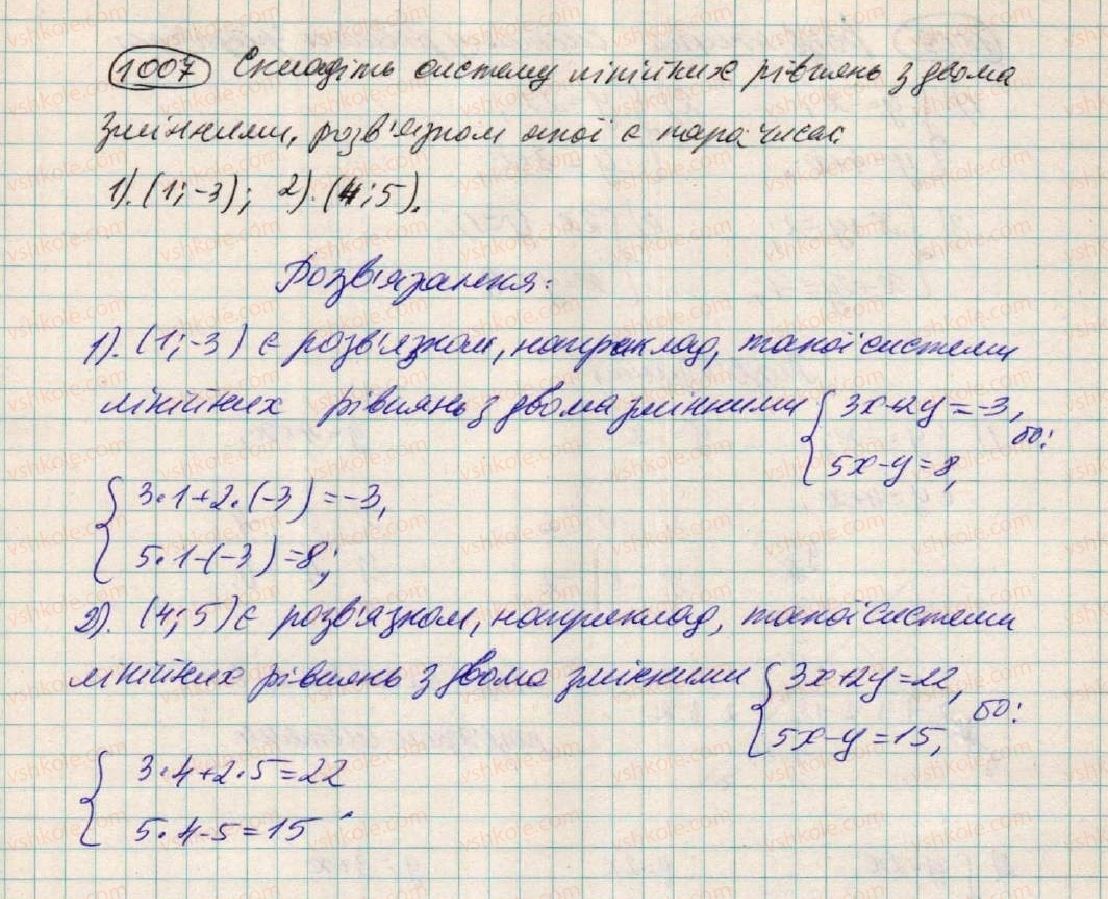 1007 Складіть систему лінійних рівнянь з двома
змінними, розв'язком якої є пара чисел.
1). (1; -3); 2). (4; 5).
Розв'язання:
1). (1; -3) є розв'язком, наприклад, такої системи
лінійних рівнянь з двома змінними { 3x+2y=-3,
5x-y=8, бо:
{ 3·1+2·(-3)=-3,
5·1-(-3)=8;
2). (4; 5) є розв'язком, наприклад, такої системи
лінійних рівнянь з двома змінними { 3x+2y=22,
5x-y=15, бо:
{ 3·4+2·5=22
5·4-5=15.